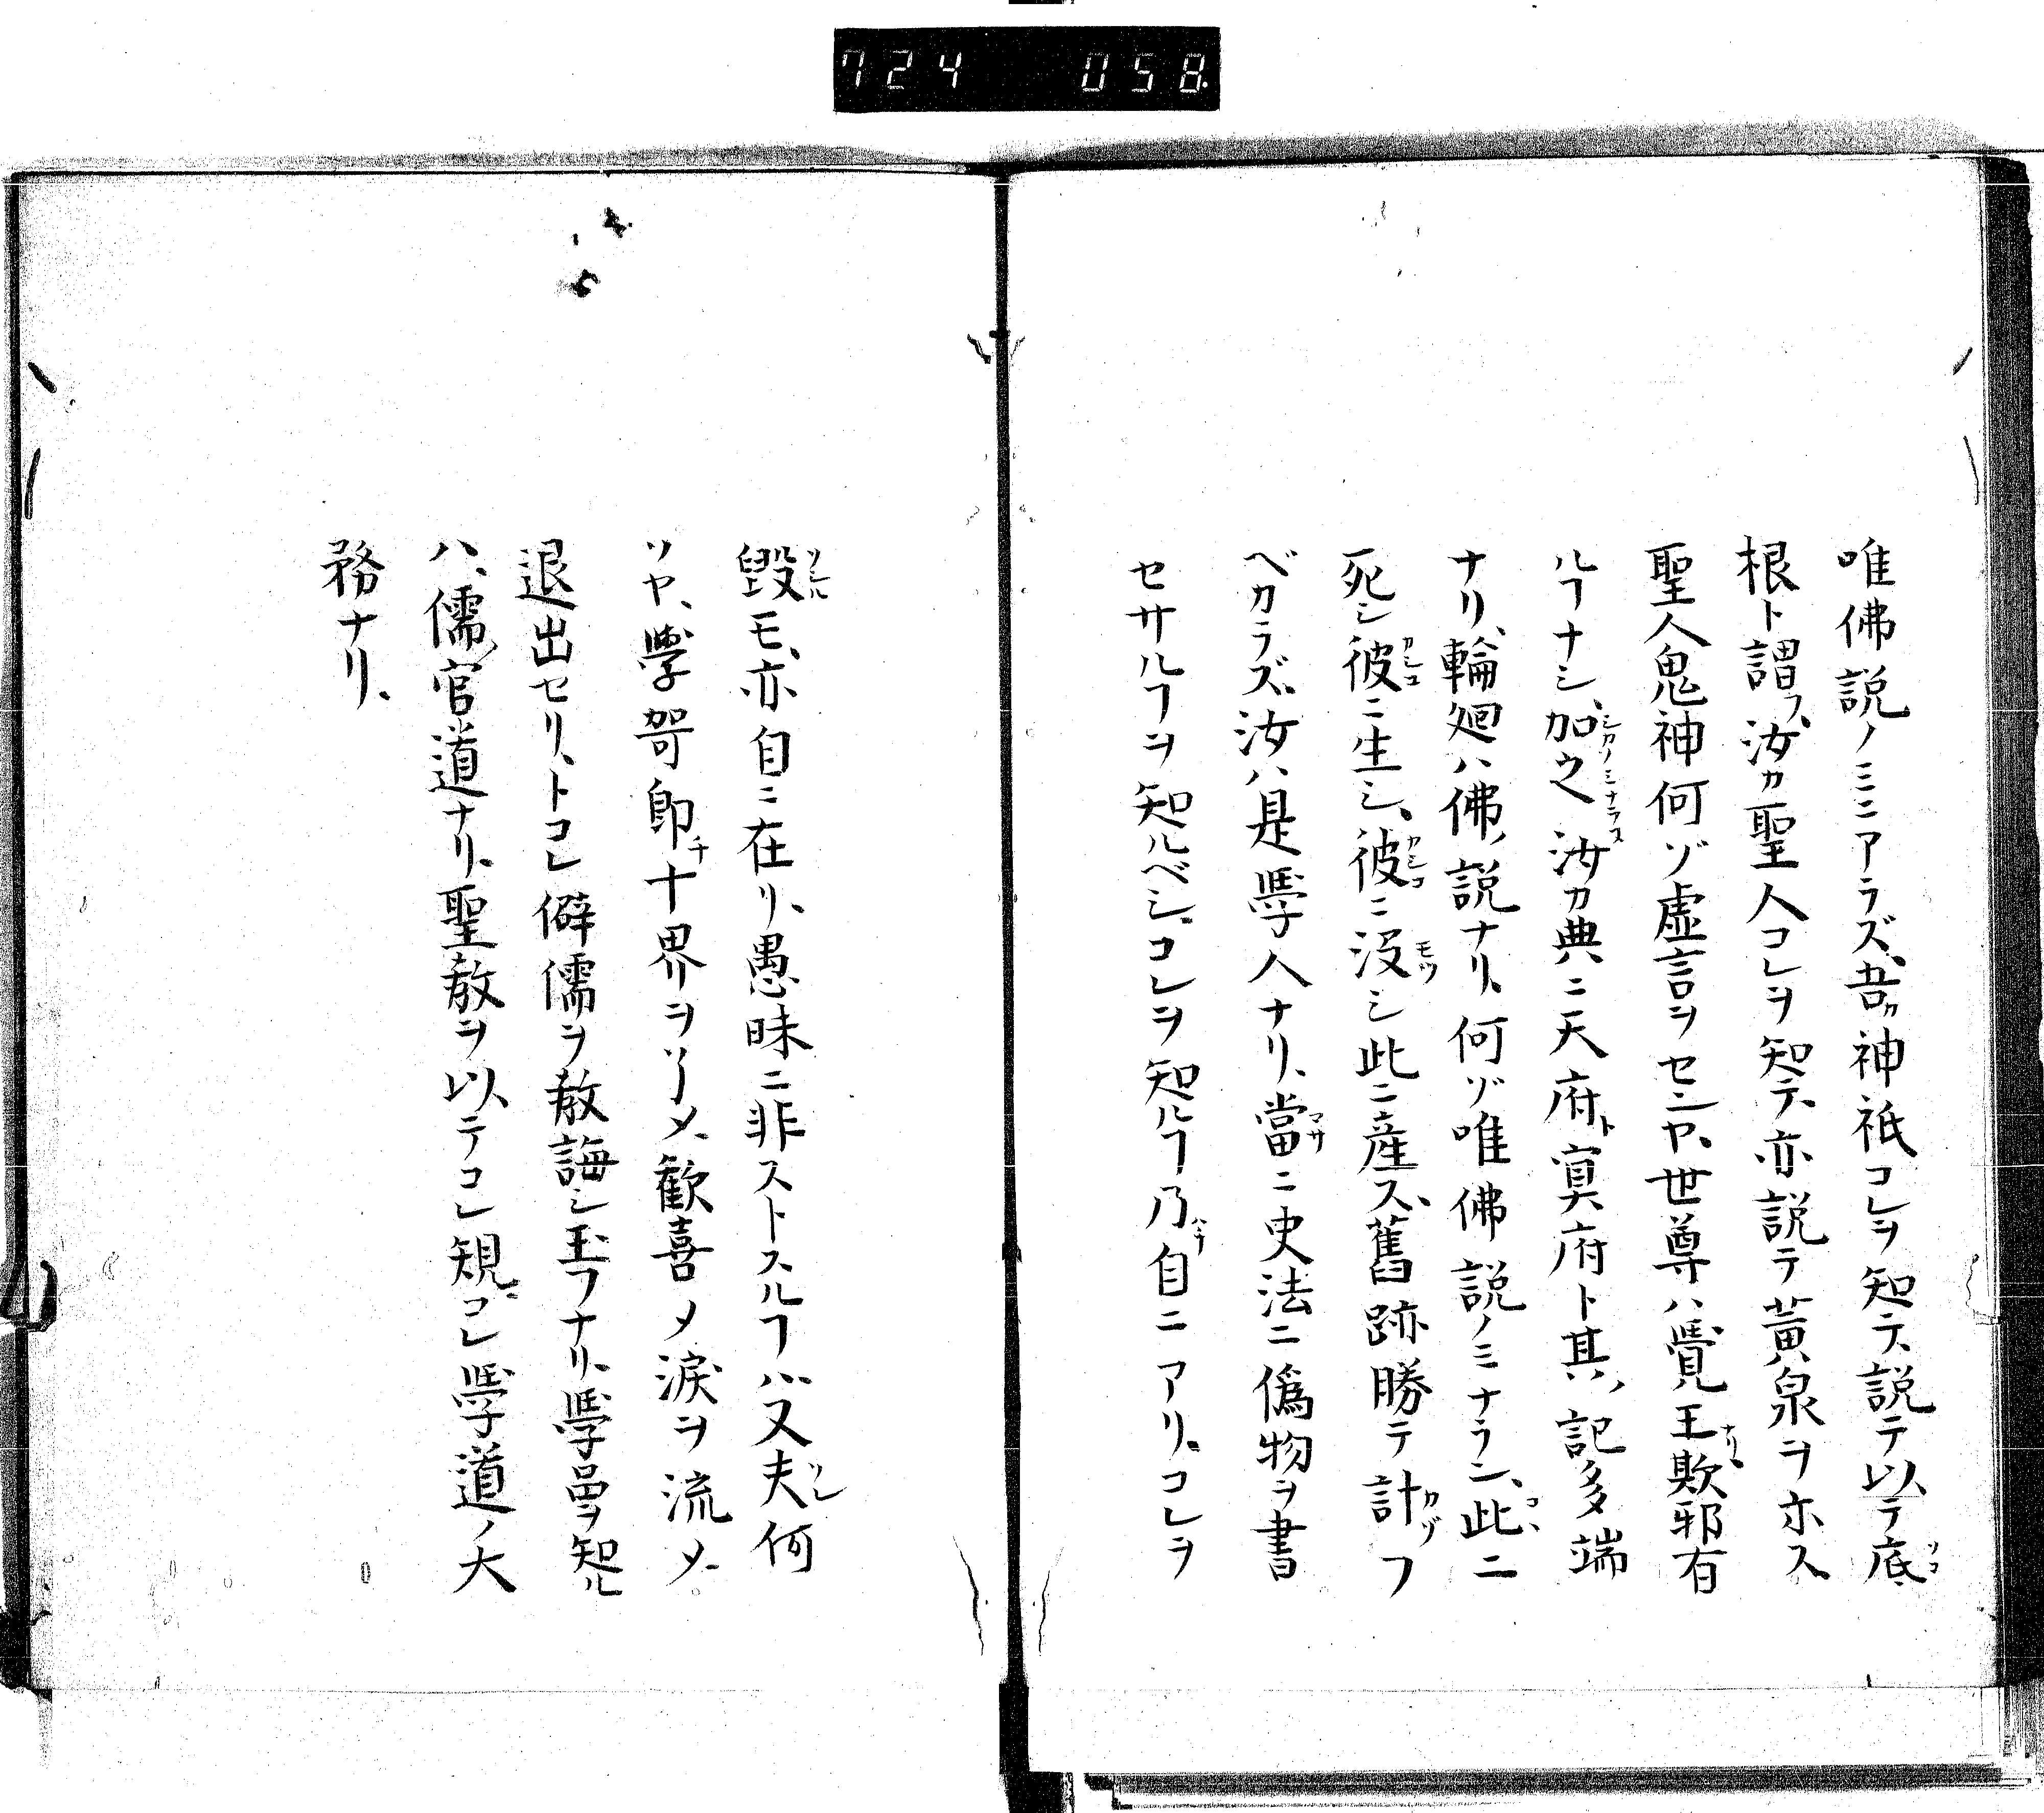 724 058
唯佛説ノミニアラズ、吾カ神祇コレヲ知テ、説テ以テ底
根ト謂フ、汝カ聖人コレヲ知テ、亦説テ黄泉ヲ示ス
聖人鬼神何ゾ虚言ヲセンヤ、世尊ハ覺王欺邪有
ルヿナシ、加之汝カ典ニ天府ト冥府ト其ノ記多端
ナリ、輪廻ハ佛ノ説ナリ、何ゾ唯佛説ノミナラン、此ニ
死シ彼ニ生シ、彼ニ没シ此ニ産ス、舊跡勝テ計フ
ベカラズ、汝ハ是學人ナリ、當ニ史法ニ偽物ヲ書
セサルヿヲ知ルベシ、コレヲ知ルヿ乃自ニアリ、コレヲ
毀モ、亦自ニ在リ、愚昧ニ非ストスルヿハ又夫何
ソヤ、學哿即チ十界ヲ メ、歓喜ノ涙ヲ流メ
退出セリ、トコレ僻儒ヲ教誨シ玉フナリ、學 ヲ知ル
ハ、儒官道ナリ、聖教ヲ以テコレ規コレ學道ノ大
務ナリ、